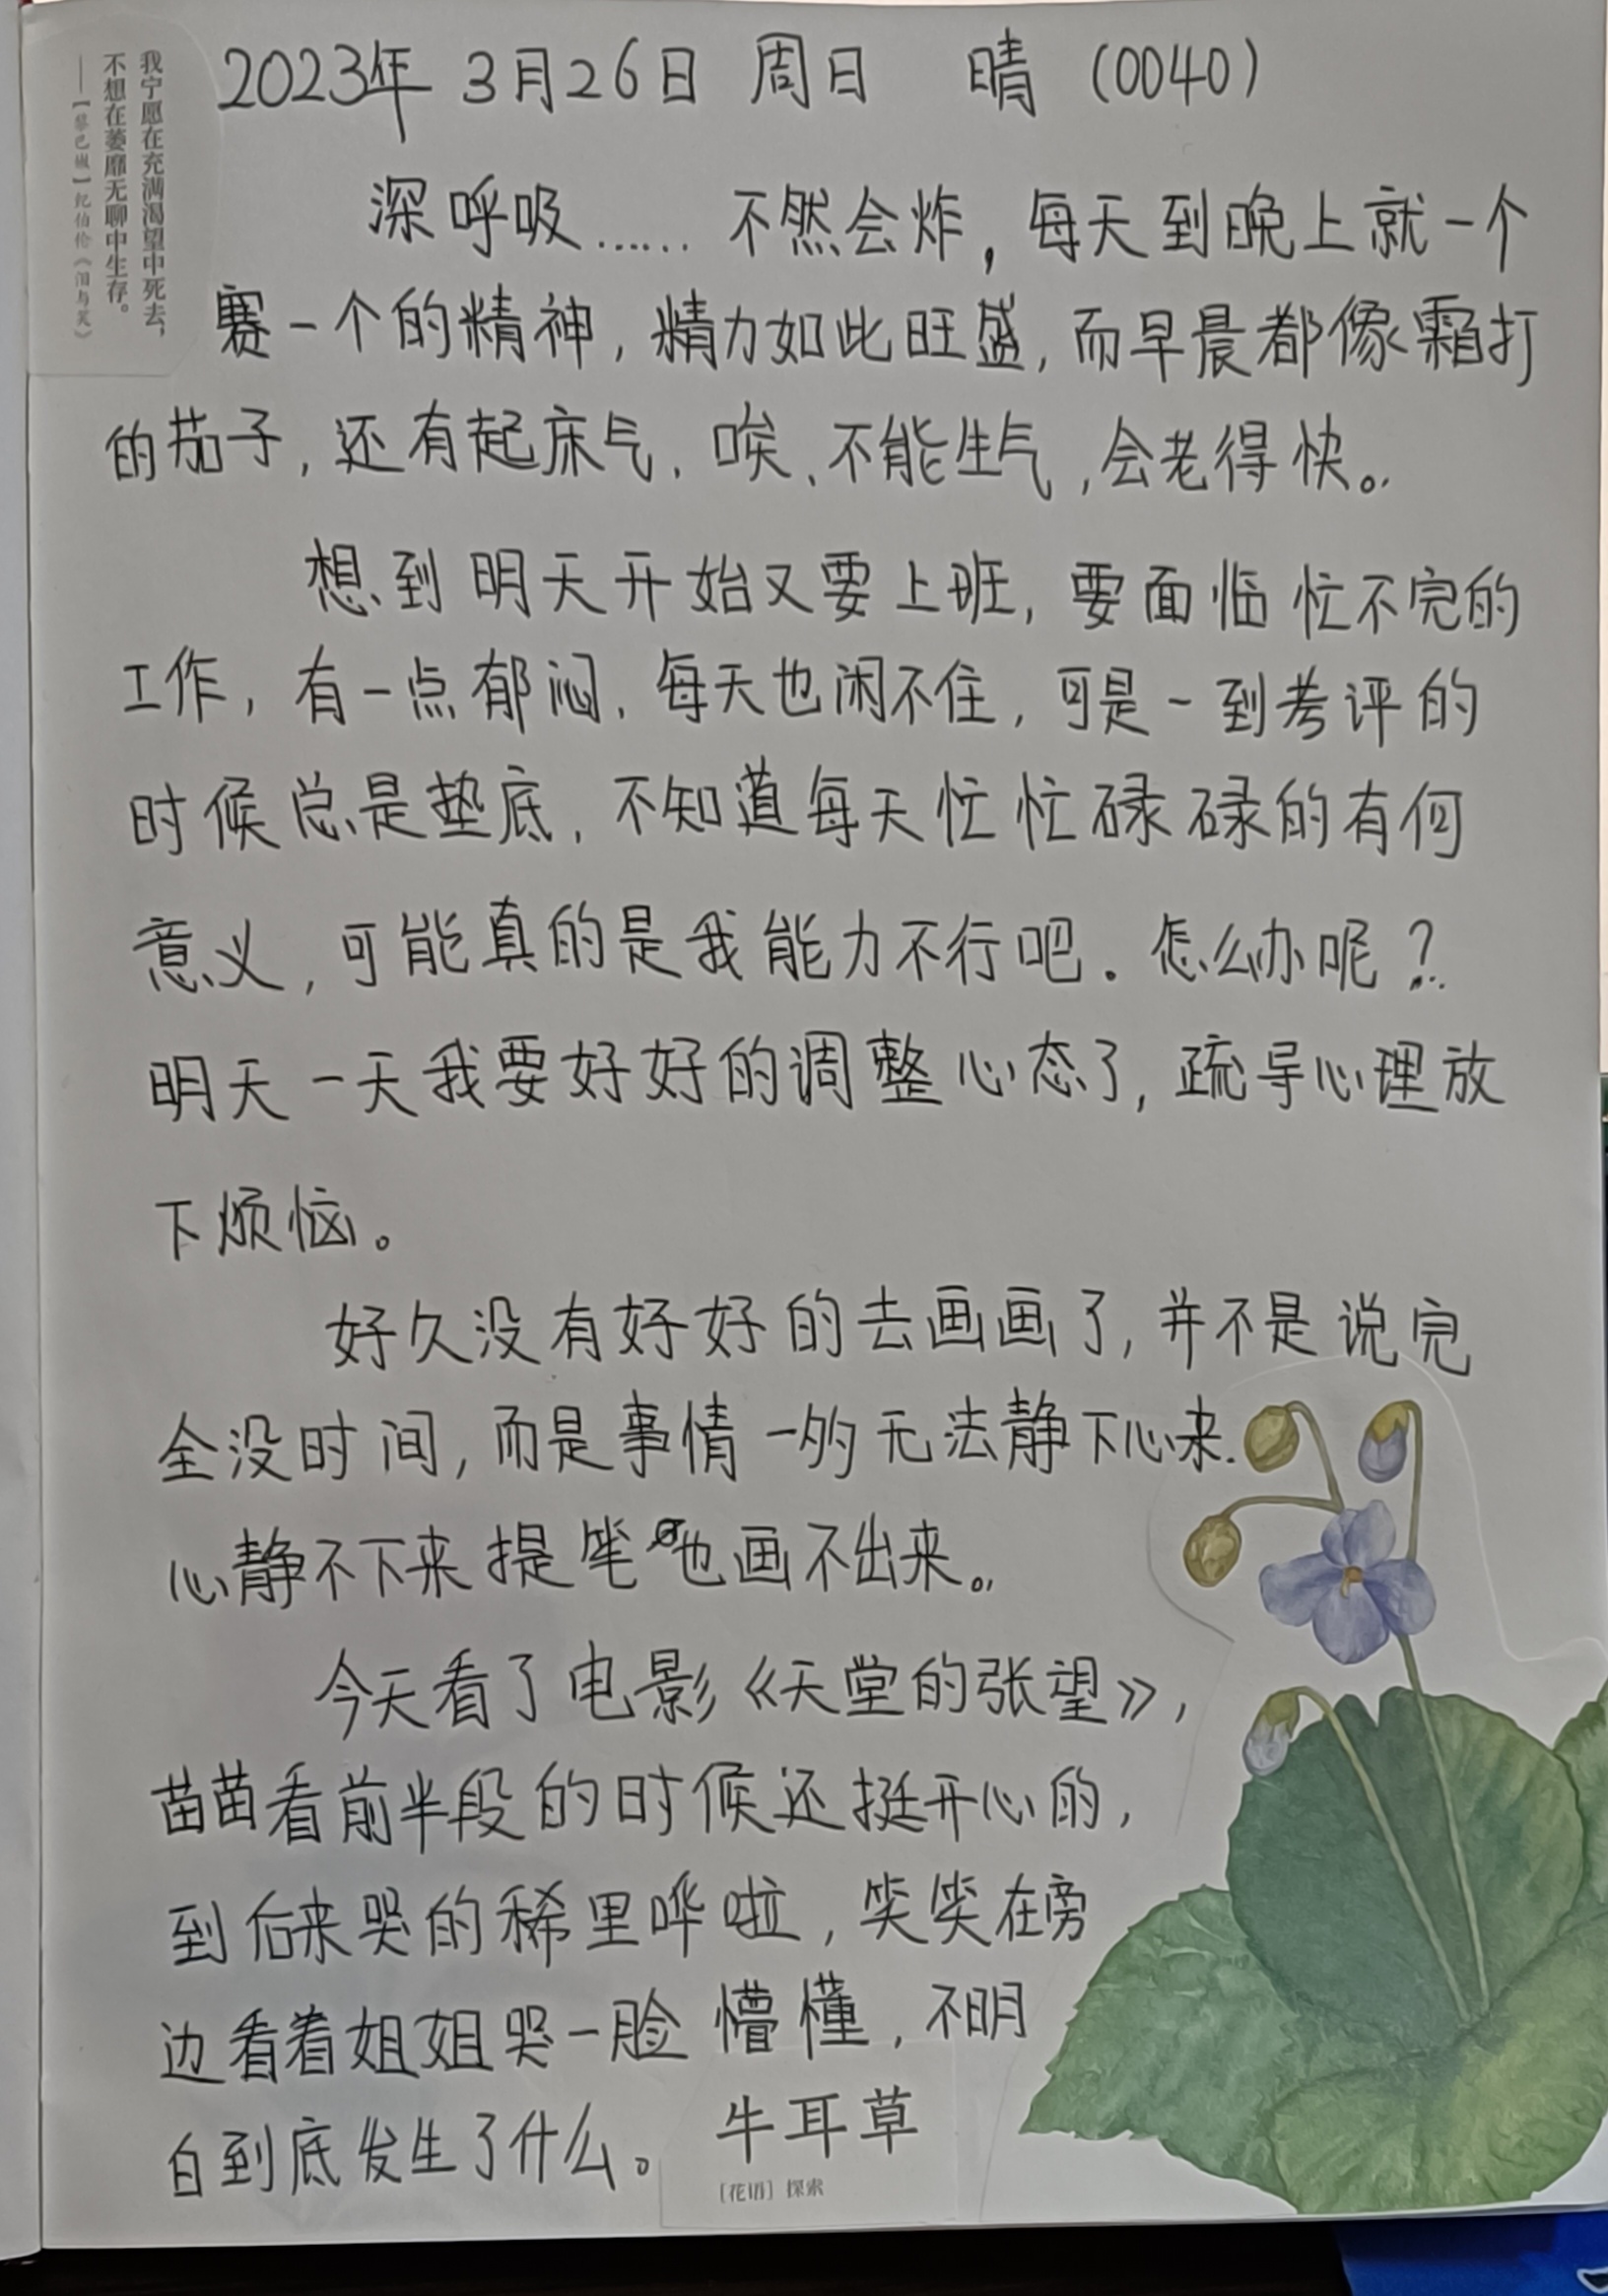 我宁愿在充满渴望中死去，
不想在萎靡无聊中生存。
——[黎巴嫩]纪伯伦《泪与笑》
2023年 3月26日 周日 晴 (0040)
深呼吸…… 不然会炸，每天到晚上就一个
赛一个的精神，精力如此旺盛，而早晨都像霜打
的茄子，还有起床气，唉、不能生气，会老得快。
想到明天开始又要上班，要面临忙不完的
工作，有一点郁闷，每天也闲不住，可是一到考评的
时候总是垫底，不知道每天忙忙碌碌的有何
意义，可能真的是我能力不行吧。怎么办呢？
明天一天我要好好的调整心态了，疏导心理放
下烦恼。
好久没有好好的去画画了，并不是说完
全没时间，而是事情一多无法静下心来.
心静不下来提笔也画不出来。
今天看了电影《天堂的张望》，
苗苗看前半段的时候还挺开心的，
到后来哭的稀里哗啦，笑笑在旁
边看着姐姐哭一脸懵懂，不明
白到底发生了什么。
牛耳草
[花语] 探索